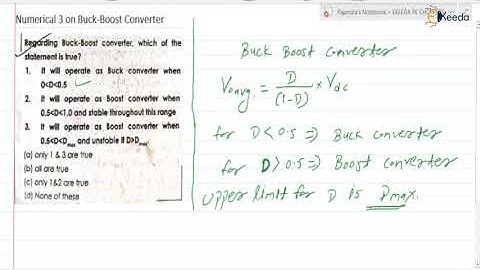 Numerical 3 on Buck-Boost Converter
Rajendra's Notebook
Ekeeda
Regarding Buck-Boost converter, which of the
statement is true?
1. It will operate as Buck converter when
0<D<0.5
2. It will operate as Boost converter when
0.5<D<1.0 and stable throughout this range
3. It will operate as Boost converter when
0.5<D<Dmax and unstable if D>Dmax.
(a) only 1 & 3 are true
(b) all are true
(c) only 1&2 are true
(d) None of these
Buck Boost converter
Voavg. = D/(1-D) × Vdc
for D < 0.5 ⇒ Buck converter
for D > 0.5 ⇒ Boost converter
upper limit for D is Dmax.